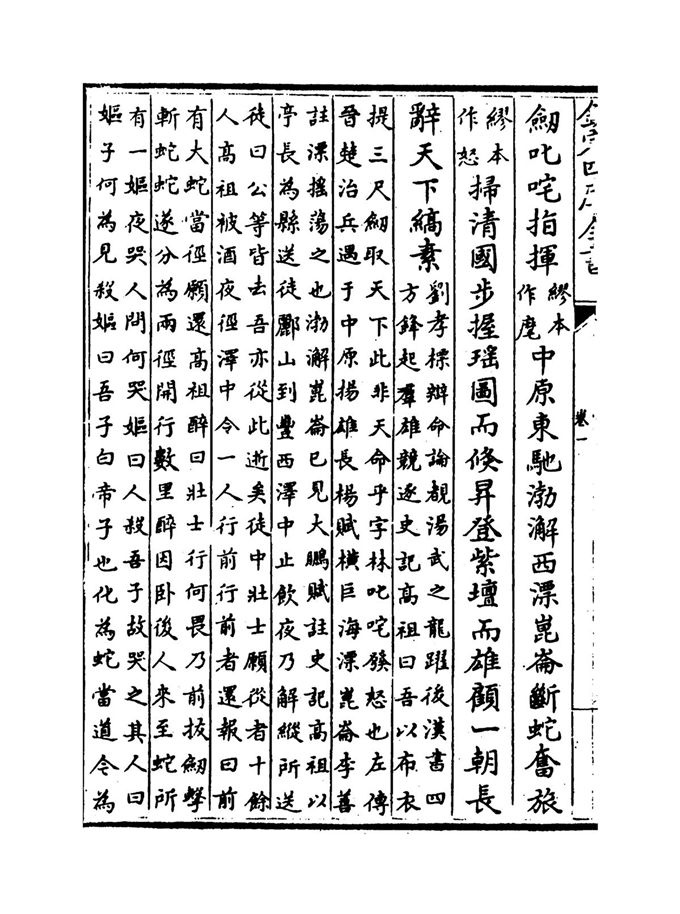 欽定四庫全書
卷一
劒叱咤指揮繆本作麾中原東馳渤澥西漂崑崙斷蛇奮旅
繆本作怒掃清國步握瑶圖而倏昇登紫壇而雄顧一朝長
辭天下縞素劉孝標辯命論覩湯武之龍躍後漢書四
方鋒起羣雄競逐史記高祖曰吾以布衣
提三尺劒取天下此非天命乎字林叱咤發怒也左傳
晉楚治兵遇于中原揚雄長楊賦橫巨海漂崑崙李善
註漂揺蕩之也渤澥崑崙已見大鵬賦註史記高祖以
亭長為縣送徒酈山到豐西澤中止飲夜乃解縱所送
徒曰公等皆去吾亦從此逝矣徒中壯士願從者十餘
人高祖被酒夜徑澤中令一人行前行前者還報曰前
有大蛇當徑願還高祖醉曰壯士行何畏乃前拔劒擊
斬蛇蛇遂分為兩徑開行數里醉因卧後人來至蛇所
有一嫗夜哭人問何哭嫗曰人殺吾子故哭之其人曰
嫗子何為見殺嫗曰吾子白帝子也化為蛇當道今為